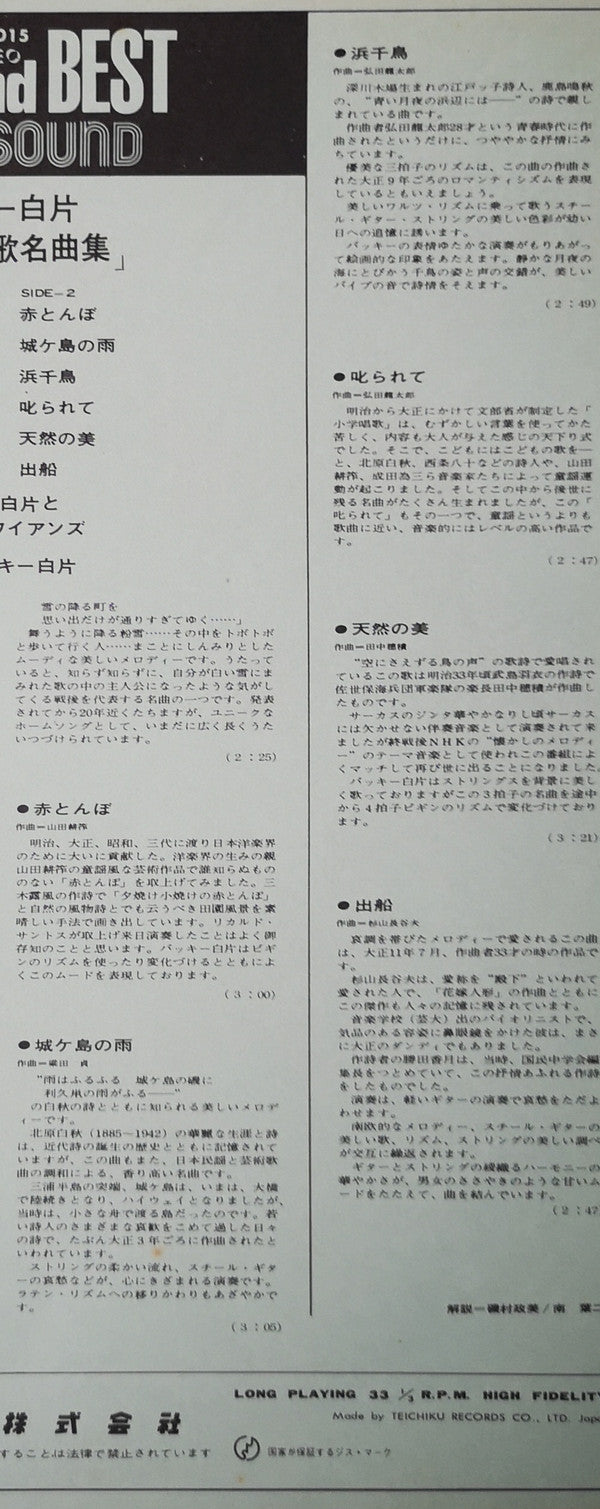 015
EO
nd BEST
SOUND
ー白片
歌名曲集」
SIDE−2
赤とんぼ
城ケ島の雨
浜千鳥
叱られて
天然の美
出船
白片と
ワイアンズ
キー白片
雪の降る町を
思い出だけが通りすぎてゆく……」
舞うように降る粉雪……その中をトボトボ
と歩いて行く人……まことにしんみりとした
ムーディな美しいメロディーです。うたって
いると、知らず知らずに、自分が白い雪にま
みれた歌の中の主人公になったような気がし
てくる戦後を代表する名曲の一つです。発表
されてから20年近くたちますが、ユニークな
ホームソングとして、いまだに広く長くうた
いつづけられています。
(2:25)
●赤とんぼ
作曲=山田耕筰
明治、大正、昭和、三代に渡り日本洋楽界
のために大いに貢献した。洋楽界の生みの親
山田耕筰の童謡風な芸術作品で誰知らぬもの
のない「赤とんぼ」を取上げてみました。三
木露風の作詩で「夕焼け小焼けの赤とんぼ」
と自然の風物詩とでも云うべき田園風景を素
晴しい手法で画き出しています。リカルド・
サントスが取上げ来日演奏したことはよく御
存知のことと思います。バッキー白片はビギ
ンのリズムを使ったり変化づけるとともによ
くこのムードを表現しております。
(3:00)
●城ケ島の雨
作曲=梁田 貞
"雨はふるふる 城ケ島の磯に
利久鼠の雨がふる――"
の白秋の詩とともに知られる美しいメロデ
ィーです。
北原白秋(1885〜1942)の華麗な生涯と詩
は、近代詩の誕生の歴史とともに記憶されて
いますが、この曲もまた、日本民謡と芸術歌
曲の調和による、香り高い名曲です。
三浦半島の突端、城ケ島は、いまは、大橋
で陸続きとなり、ハイウェイとなりましたが、
当時は、小さな舟で渡る島だったのです。若
い詩人のさまざまな哀歓をこめて過した日々
の詩で、たぶん大正3年ごろに作曲されたと
いわれています。
ストリングの柔かい流れ、スチール・ギタ
ーの哀愁などが、心にきざまれる演奏です。
ラテン・リズムへの移りかわりもあざやかで
す。
(3:05)
●浜千鳥
作曲=弘田龍太郎
深川木場生まれの江戸ッ子詩人、鹿島鳴秋
の、"青い月夜の浜辺には――"の詩で親し
まれている曲です。
作曲者弘田龍太郎28才という青春時代に作
曲されたというだけに、つややかな抒情にみ
ちています。
優美な三拍子のリズムは、この曲の作曲さ
れた大正9年ごろのロマンティシズムを表現
しているともいえましょう。
美しいワルツ・リズムに乗って歌うスチー
ル・ギター・ストリングの美しい色彩が幼い
日への追憶に誘います。
バッキーの表情ゆたかな演奏がもりあがっ
て絵画的な印象をあたえます。静かな月夜の
海にとびかう千鳥の姿と声の交錯が、美しい
パイプの音で詩情をそえます。
(2:49)
●叱られて
作曲=弘田龍太郎
明治から大正にかけて文部省が制定した「
小学唱歌」は、むずかしい言葉を使ってかた
苦しく、内容も大人が与えた感じの天下り式
でした。そこで、こどもにはこどもの歌を―
と、北原白秋、西条八十などの詩人や、山田
耕筰、成田為三ら音楽家たちによって童謡運
動が起こりました。そしてこの中から後世に
残る名曲がたくさん生まれましたが、この「
叱られて」もその一つで、童謡というよりも
歌曲に近い、音楽的にはレベルの高い作品で
す。
(2:47)
●天然の美
作曲=田中穂積
"空にさえずる鳥の声"の歌詩で愛唱され
ているこの歌は明治33年頃武島羽衣の作詩で
佐世保海兵団軍楽隊の楽長田中穂積が作曲し
たものです。
サーカスのジンタ華やかなりし頃サーカス
には欠かせない伴奏音楽として演奏されて来
ましたが終戦後NHKの"懐かしのメロディ
ー"のテーマ音楽として使われこの番組によ
くマッチして再び世に出ることになりました。
バッキー白片はストリングスを背景に美し
く歌っておりますがこの3拍子の名曲を途中
から4拍子ビギンのリズムで変化づけており
ます。
(3:21)
●出船
作曲=杉山長谷夫
哀調を帯びたメロディーで愛されるこの曲
は、大正11年7月、作曲者33才の時の作品で
す。
杉山長谷夫は、愛称を"殿下"といわれて
愛された人で、「花嫁人形」の作曲とともに
この傑作も人々の記憶に残されています。
音楽学校(芸大)出のバイオリニストで、
気品のある容姿に鼻眼鏡をかけた彼は、まさ
に大正のダンディでもありました。
作詩者の勝田香月は、当時、国民中学会編
集長をつとめていて、この抒情あふれる作詩
をしたものでした。
演奏は、軽いギターの演奏で哀愁をただよ
わせます。
南欧的なメロディー、スチール・ギターの
美しい歌、リズム、ストリングの美しい調べ
が交互に繰返されます。
ギターとストリングの綾織るハーモニーの
華やかさが、男女のささやきのような甘いム
ードをたたえて、曲を結んでいます。
(2:47
解説=磯村政美/南 葉二
LONG PLAYING 33 ⅓ R.P.M. HIGH FIDELITY
株式会社
Made by TEICHIKU RECORDS CO., LTD. Japa
することは法律で禁止されています
国家が保証するジス・マーク